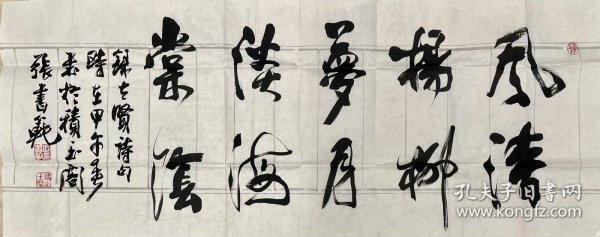 風清
楊柳
夢月
淡海
棠陰
錄古賢詩句
時在甲午春
書於積玉閣
張書範
孔夫子旧书网
www.kongfz.com